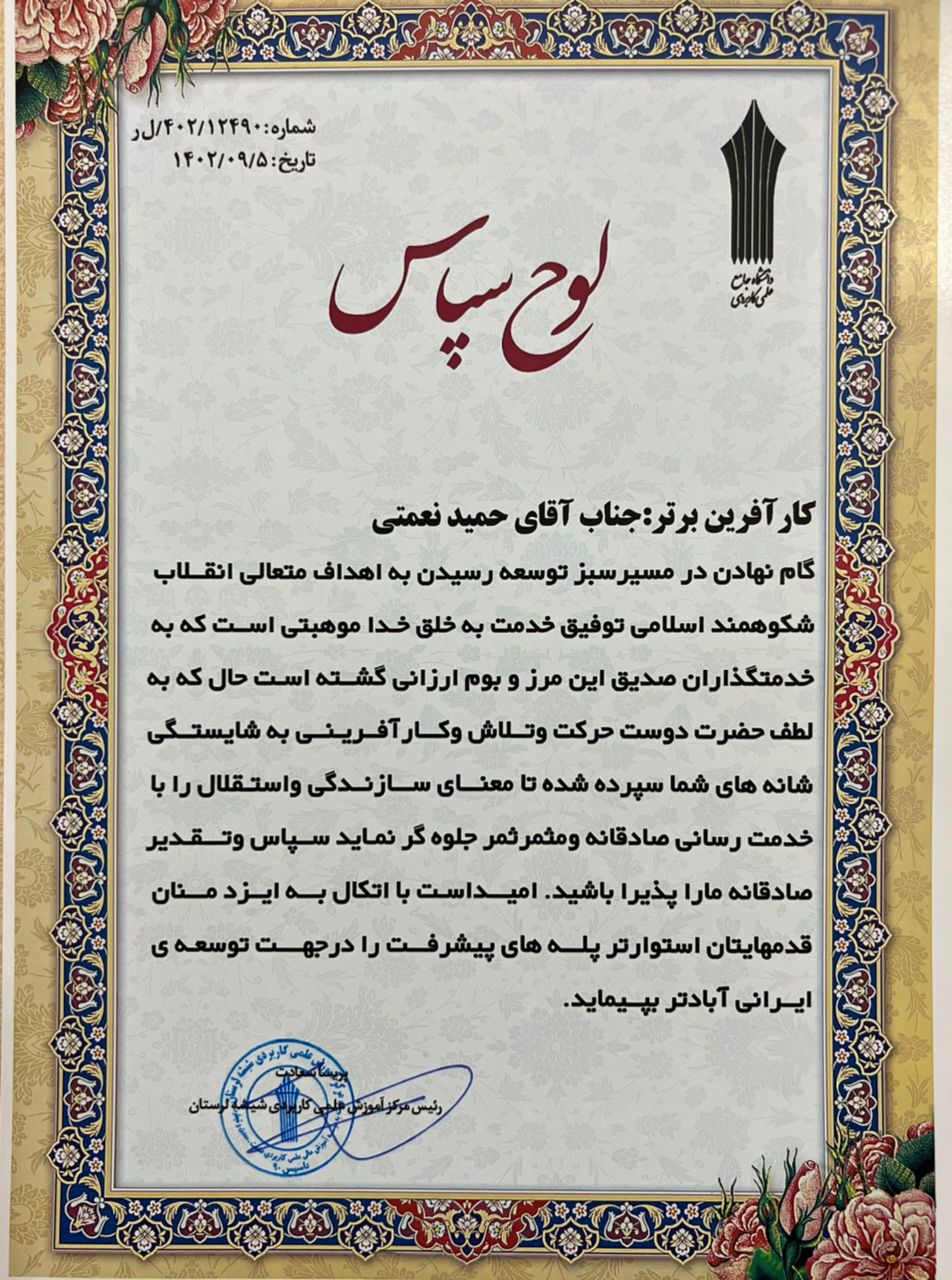 شماره: ۴۰۲/۱۲۴۹۰/ل ر
تاریخ: ۱۴۰۲/۰۹/۵
دانشگاه جامع
علمی کاربردی
لوح سپاس
کارآفرین برتر:جناب آقای حمید نعمتی
گام نهادن در مسیرسبز توسعه رسیدن به اهداف متعالی انقلاب
شکوهمند اسلامی توفیق خدمت به خلق خدا موهبتی است که به
خدمتگذاران صدیق این مرز و بوم ارزانی گشته است حال که به
لطف حضرت دوست حرکت وتلاش وکارآفرینی به شایستگی
شانه های شما سپرده شده تا معنای سازندگی واستقلال را با
خدمت رسانی صادقانه ومثمرثمر جلوه گر نماید سپاس وتقدیر
صادقانه مارا پذیرا باشید. امیداست با اتکال به ایزد منان
قدمهایتان استوارتر پله های پیشرفت را درجهت توسعه ی
ایرانی آبادتر بپیماید.
پریسا سعادت
رئیس مرکز آموزش علمی کاربردی شیشه لرستان
علمی کاربردی شیشه لرستان
تأسیس ۹۰